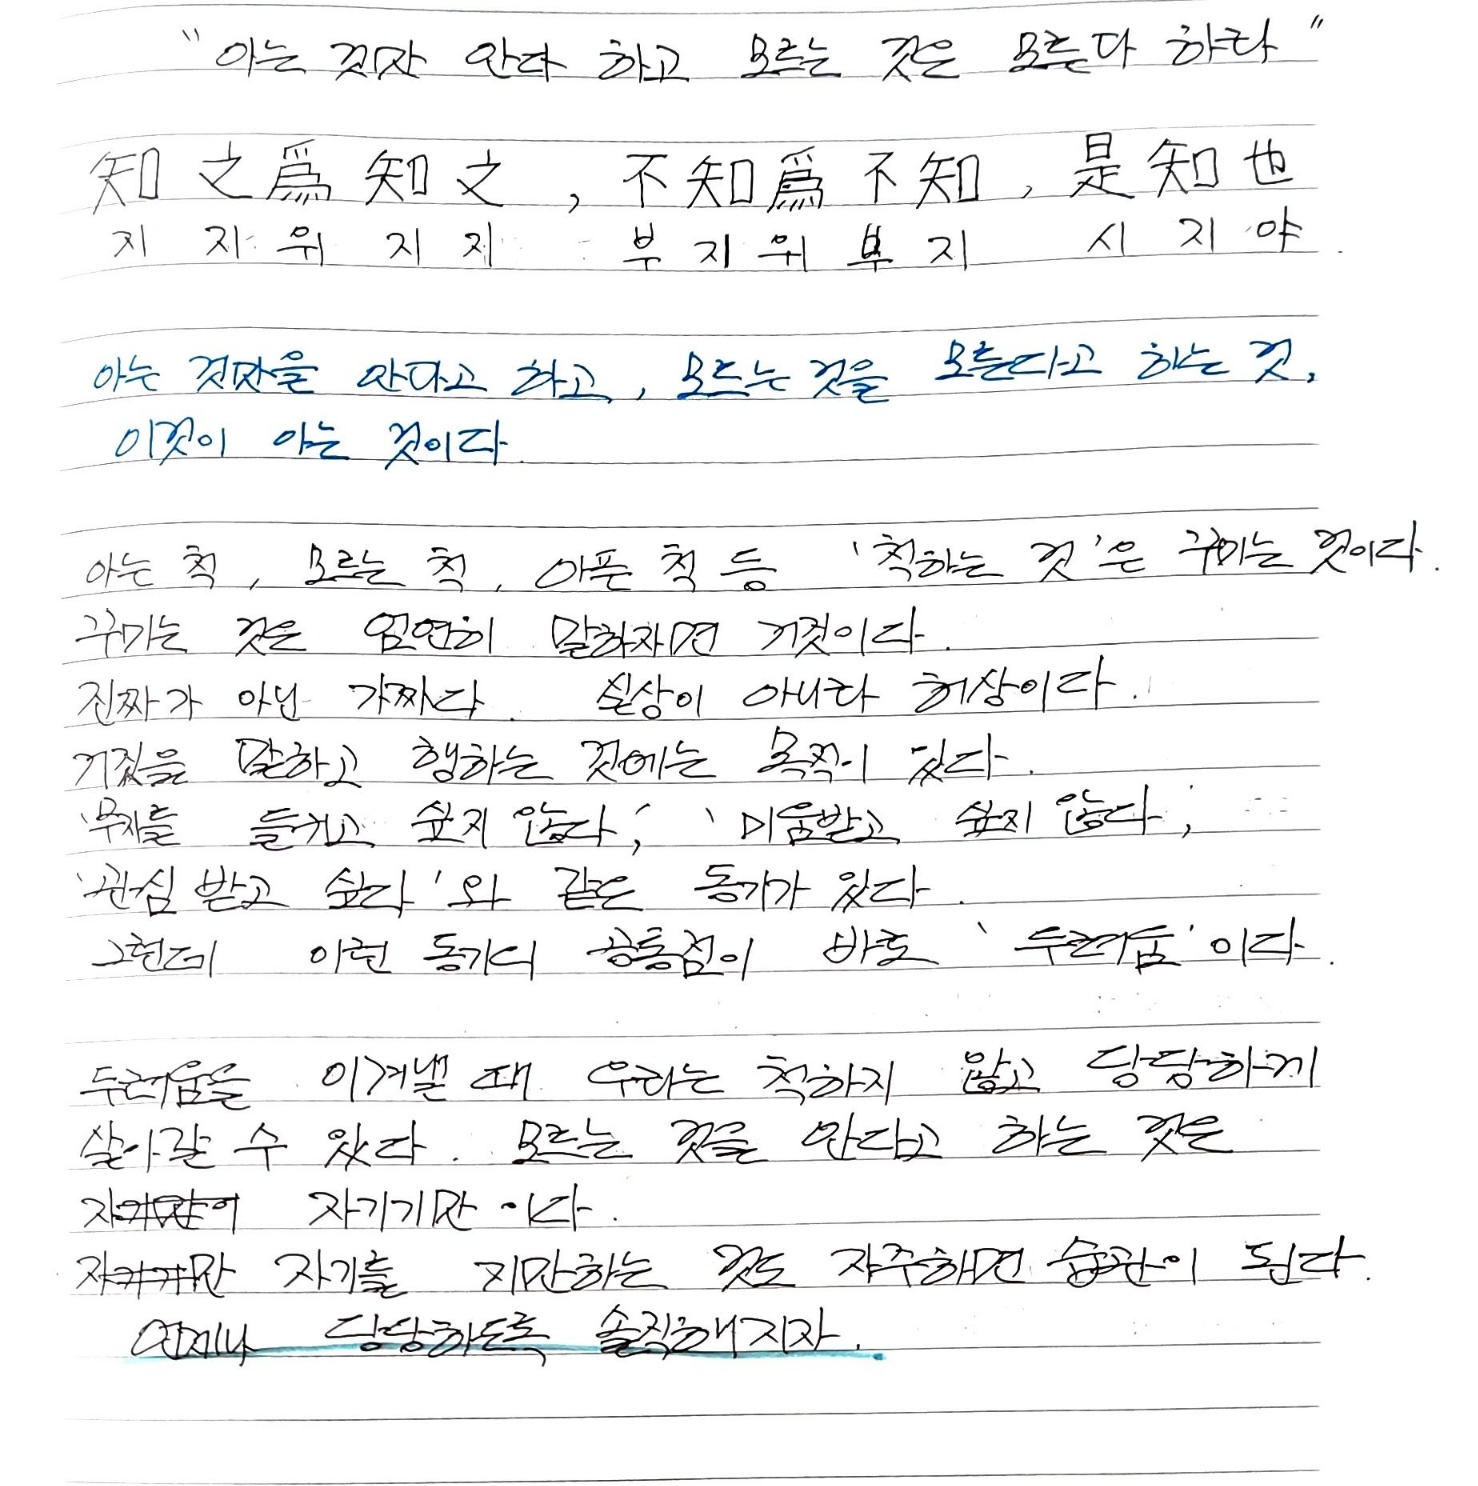 "아는 것만 안다 하고 모르는 것은 모른다 하라"
知之爲知之, 不知爲不知, 是知也
지 지 위 지 지 부 지 위 부 지 시 지 야.
아는 것만을 안다고 하고, 모르는 것을 모른다고 하는 것,
이것이 아는 것이다.
아는 척, 모르는 척, 아픈 척 등 '척하는 것'은 꾸미는 것이다.
꾸미는 것은 엄연히 말하자면 거짓이다.
진짜가 아닌 가짜다. 실상이 아니라 허상이다.
거짓을 말하고 행하는 것에는 목적이 있다.
'무지를 들키고 싶지 않다', '미움받고 싶지 않다',
'관심 받고 싶다'와 같은 동기가 있다.
그런데 이런 동기의 공통점이 바로 '두려움'이다.
두려움을 이겨낼 때 우리는 척하지 않고 당당하게
살아갈 수 있다. 모르는 것을 안다고 하는 것은
자기기만이다.
자기를 기만하는 것도 자주하면 습관이 된다.
언제나 당당하도록 솔직해지자.